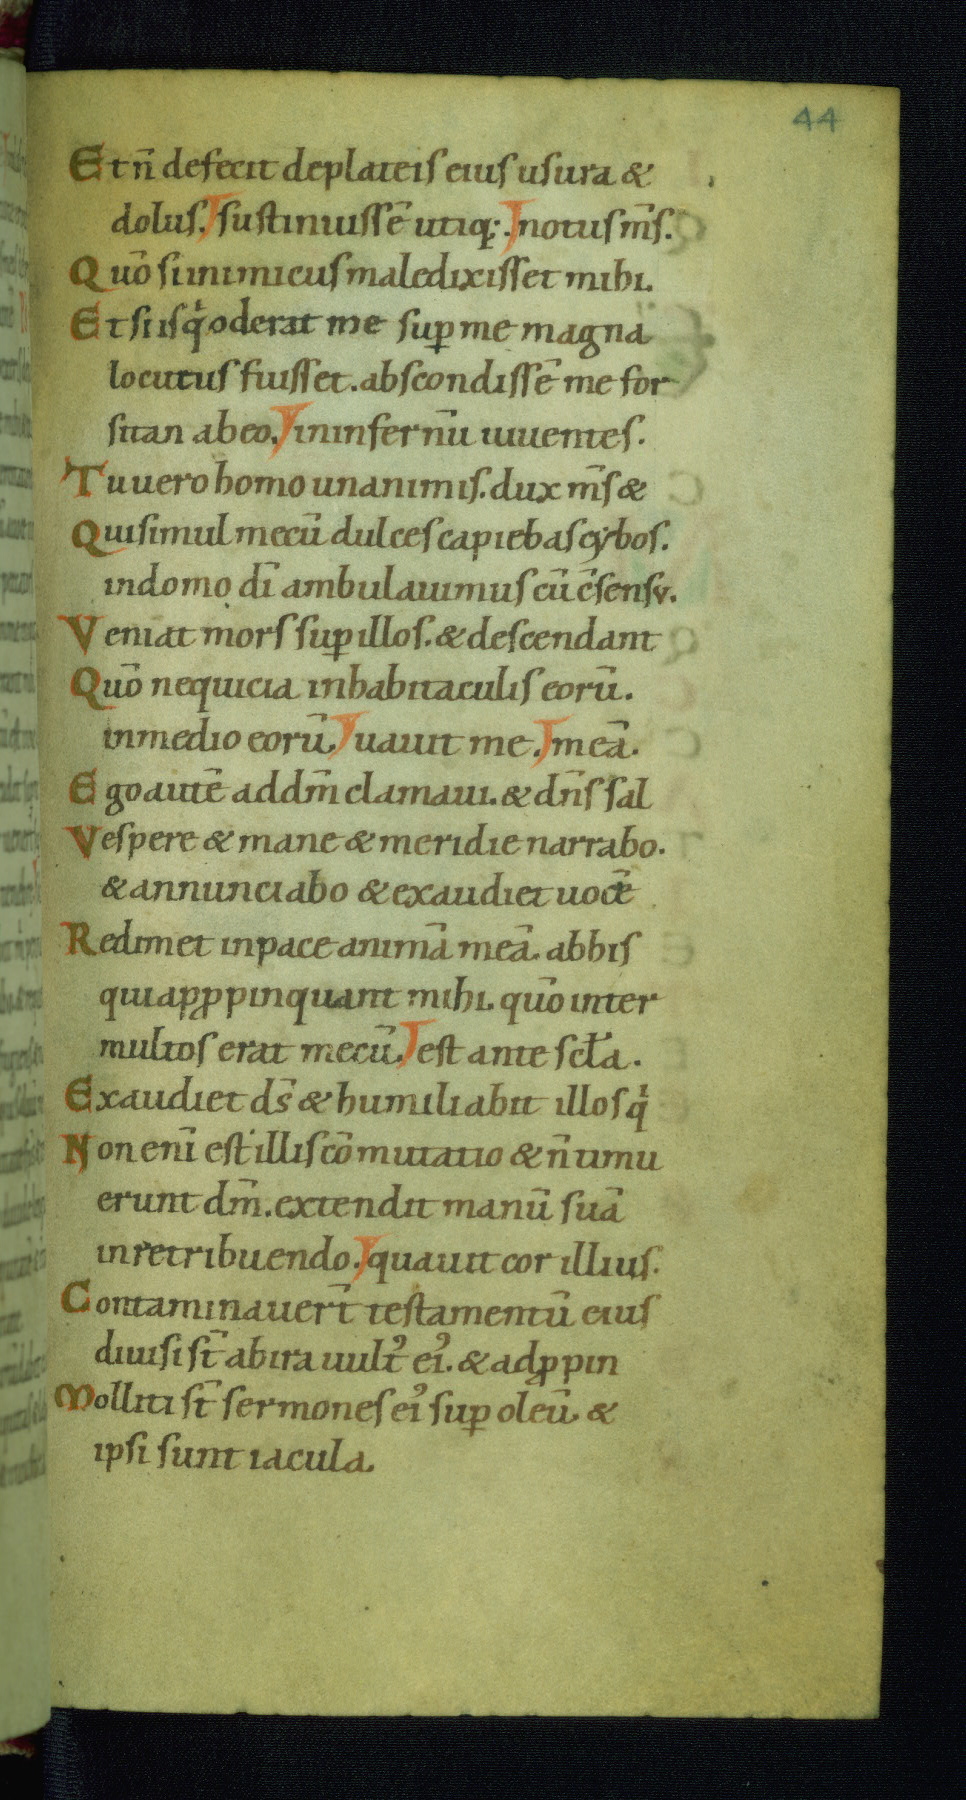 44
Et n̄ defecit deplateis eius usura &
dolus. sustinuissē utiq;. notus m̄s.
Quō si inimicus maledixisset mihi.
Et si is qͥ oderat me sup me magna
locutus fuisset. abscondissē me for
sitan ab eo. in infernū uiuentes.
Tu uero homo unanimis. dux m̄s &
Qui simul mecū dulces capiebas cybos.
indomo dī ambulauimus cū c̄sensv.
Veniat mors sup illos. & descendant
Quō nequicia inhabitaculis eorū.
inmedio eorū. uauit me. meā.
Ego autē addm̄ clamaui. & dn̄s sal
Vespere & mane & meridie narrabo.
& annunciabo & exaudiet uocē
Redimet inpace animā meā. abhis
qui apppinquant mihi. quō inter
multos erat mecū. est ante scl̄a.
Exaudiet ds̄ & humiliabit illos qͥ
Non enī est illis cōmutatio & n̄ timu
erunt dm̄. extendit manū suā
inretribuendo. quauit cor illius.
Contaminauer̄t testamentū eius
diuisi st̄ abira uult᾽ ei᾽. & adppin
Molliti st̄ sermones ei᾽ sup oleū. &
ipsi sunt iacula.